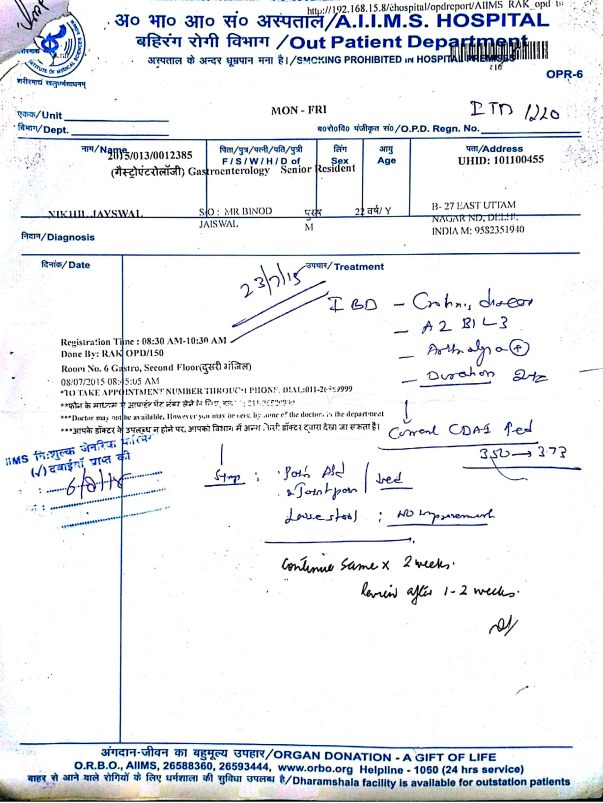 http://192.168.15.8/chospital/opdreport/AIIMS_RAK_opd
अ० भा० आ० सं० अस्पताल/A.I.I.M.S. HOSPITAL
बहिरंग रोगी विभाग /Out Patient Department
अस्पताल के अन्दर धूम्रपान मना है।/SMOKING PROHIBITED IN HOSPITAL PREMISES
शरीरमाद्यं खलुधर्मसाधनम्
OPR-6
एकक/Unit
MON - FRI
ITD 1220
विभाग/Dept.
ब०रो०वि० पंजीकृत सं०/O.P.D. Regn. No.
नाम/Name
पिता/पुत्र/पत्नी/पति/पुत्री
लिंग
आयु
पता/Address
2015/013/0012385
F/S/W/H/D of
Sex
Age
UHID: 101100455
(गैस्ट्रोएंटरोलॉजी) Gastroenterology Senior Resident
NIKHIL JAYSWAL
S/O : MR BINOD JAISWAL
पुरुष M
22 वर्ष/ Y
B- 27 EAST UTTAM
NAGAR ND, DELHI,
INDIA M: 9582351940
निदान/Diagnosis
दिनांक/Date
उपचार/Treatment
23/7/15
IBD - Crohn's disease
- A2 B1 L3
- Arthalgia (+)
- Duration 2 yrs
Registration Time : 08:30 AM-10:30 AM
Done By: RAK OPD/150
Room No. 6 Gastro, Second Floor(दुसरी मंजिल)
08/07/2015 08:45:05 AM
*TO TAKE APPOINTMENT NUMBER THROUGH PHONE, DIAL:011-26589999
**फोन के माध्यम से अपाइंटमेंट नंबर लेने के लिए,
***Doctor may not be available, However you may be seen by some of the doctors in the department
***आपके डॉक्टर के उपलब्ध न होने पर, आपको विभाग में अन्य किसी डॉक्टर द्वारा देखा जा सकता है।
Current CDAI
350 → 373
AIIMS निःशुल्क जेनरिक फार्मेसी
(√) दवाईयाँ प्राप्त की
Pain Abd
& Joint pain
Loose stool : No improvement
Continue same x 2 weeks.
Review after 1-2 weeks.
अंगदान-जीवन का बहुमूल्य उपहार/ORGAN DONATION - A GIFT OF LIFE
O.R.B.O., AIIMS, 26588360, 26593444, www.orbo.org Helpline - 1060 (24 hrs service)
बाहर से आने वाले रोगियों के लिए धर्मशाला की सुविधा उपलब्ध है/Dharamshala facility is available for outstation patients